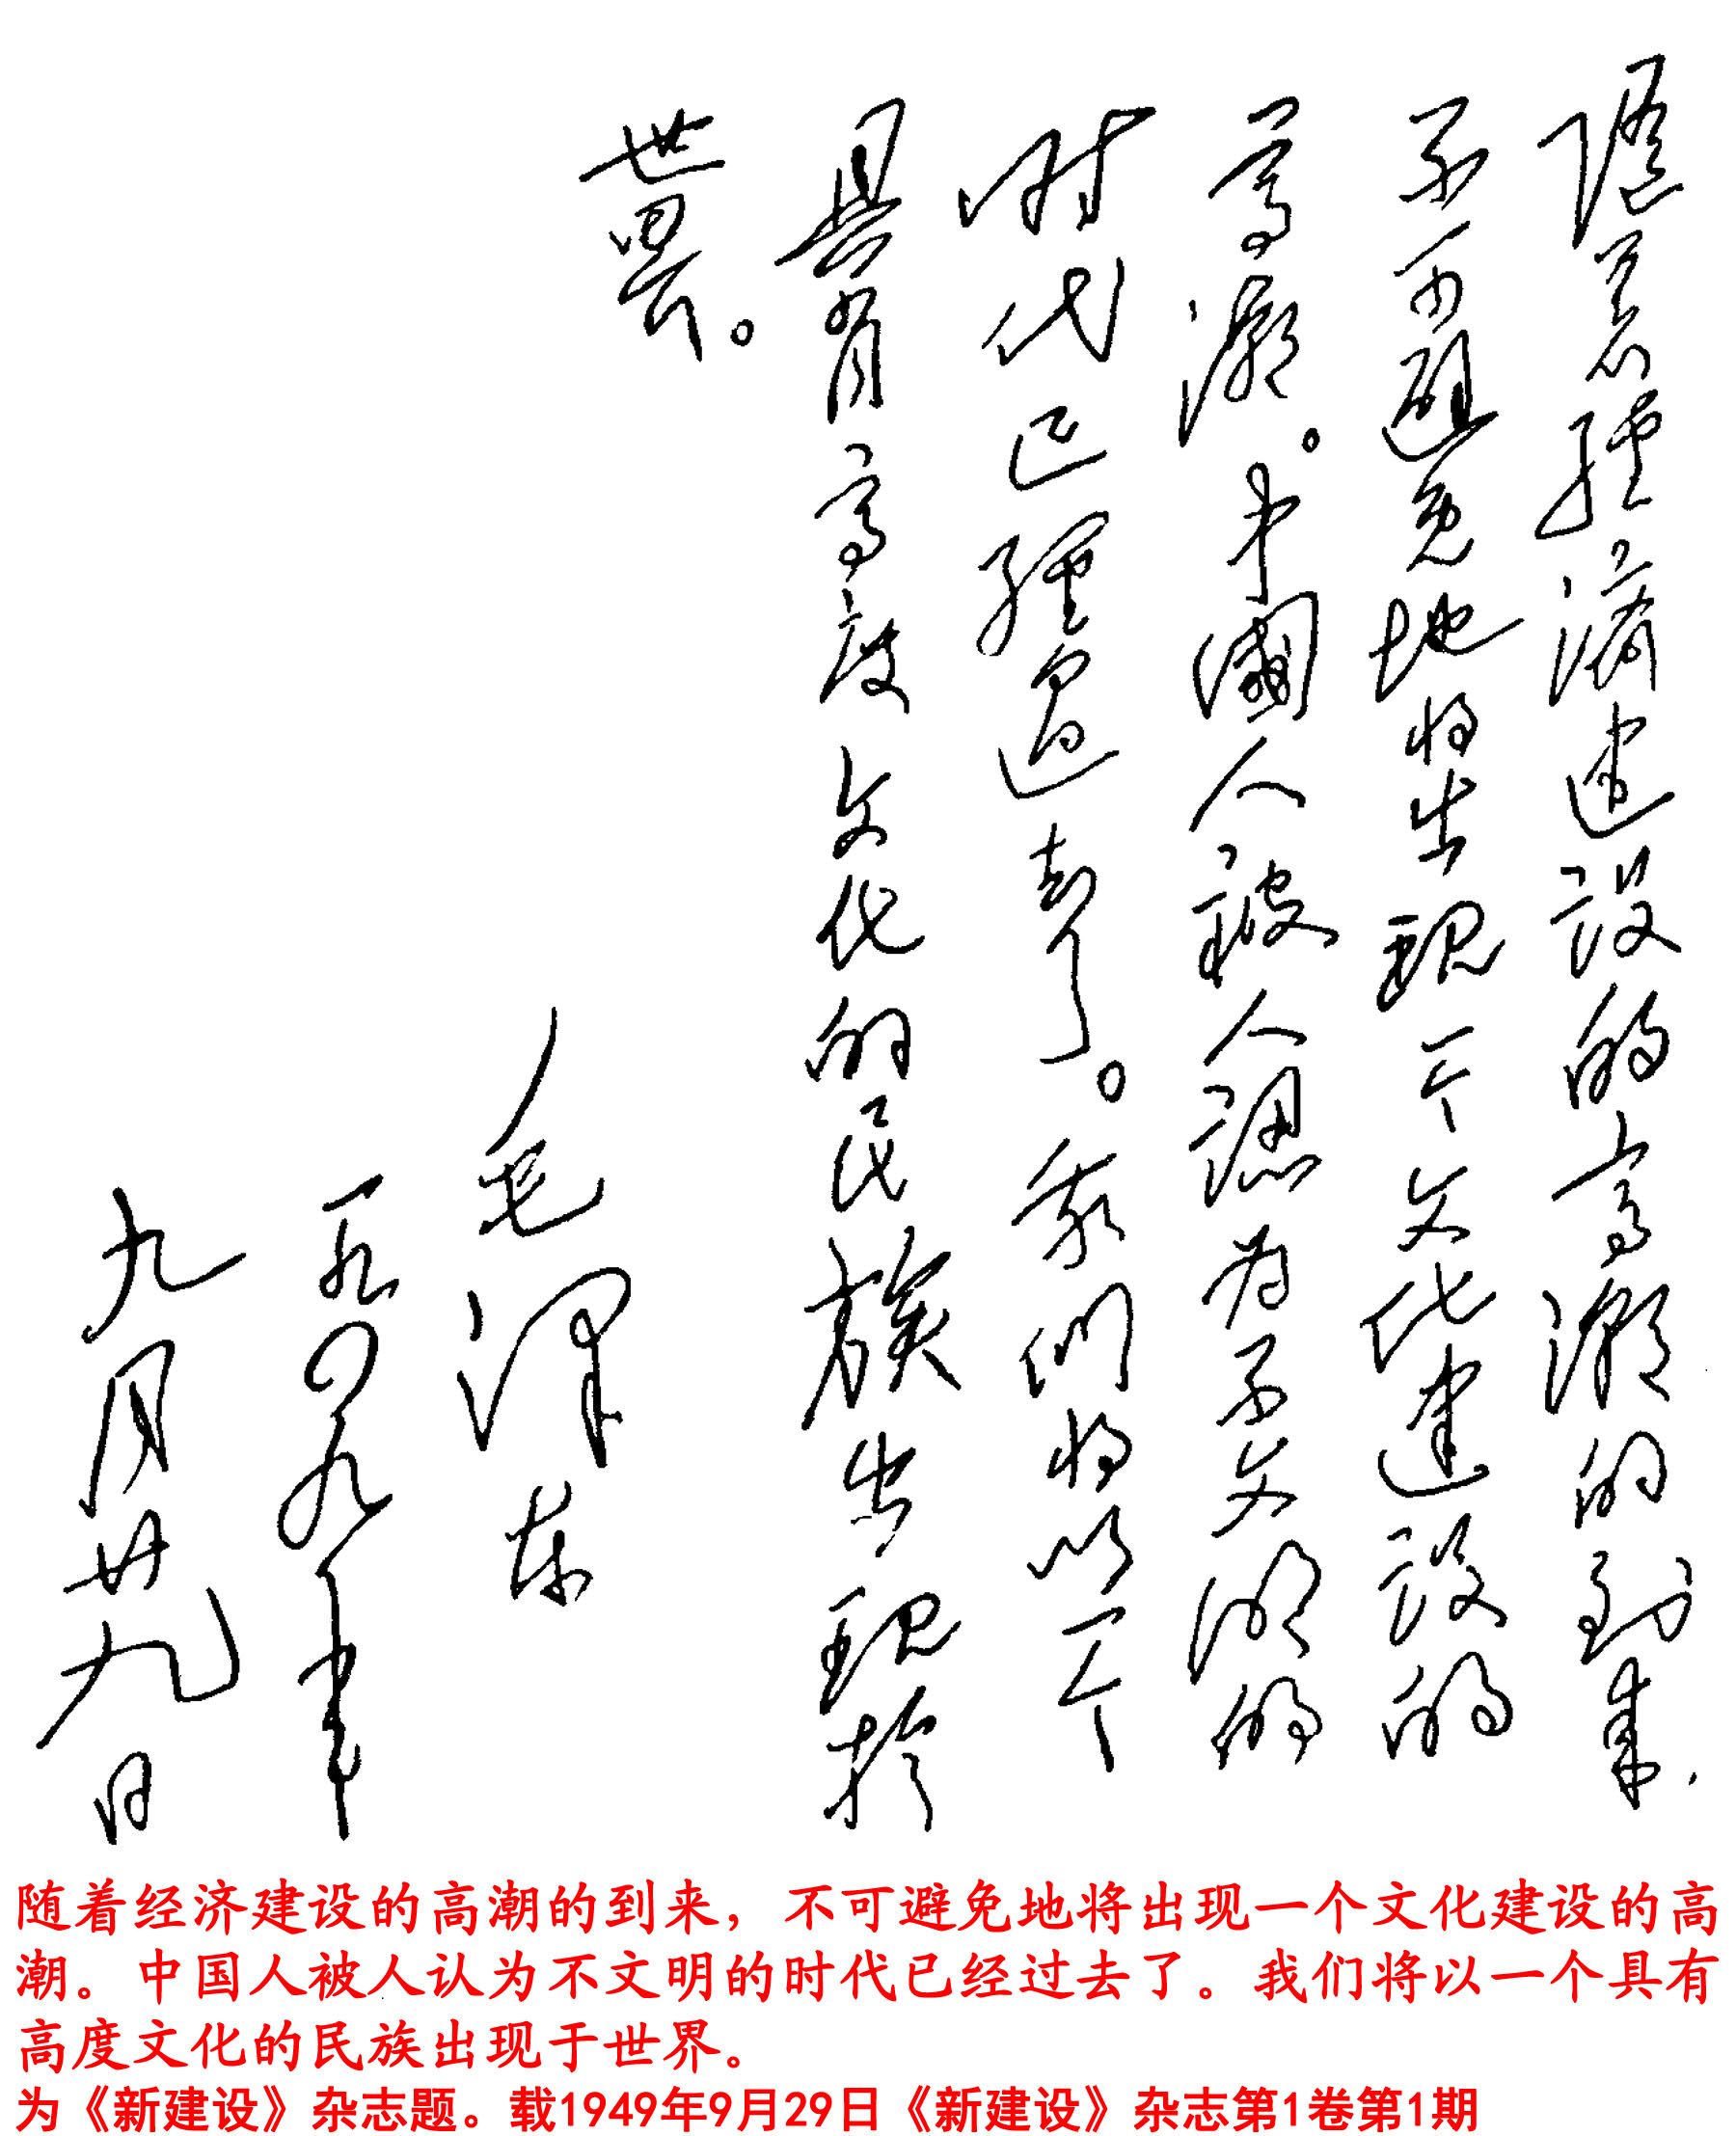 隨着經濟建设的高潮的到来,
不可避免地将出现一个文化建设的
高潮。中國人被人認为不文明的
时代已經过去了。我們将以一个
具有高度文化的民族出现於
世界。
毛泽东
一九四九年
九月廿九日
随着经济建设的高潮的到来，不可避免地将出现一个文化建设的高
潮。中国人被人认为不文明的时代已经过去了。我们将以一个具有
高度文化的民族出现于世界。
为《新建设》杂志题。载1949年9月29日《新建设》杂志第1卷第1期